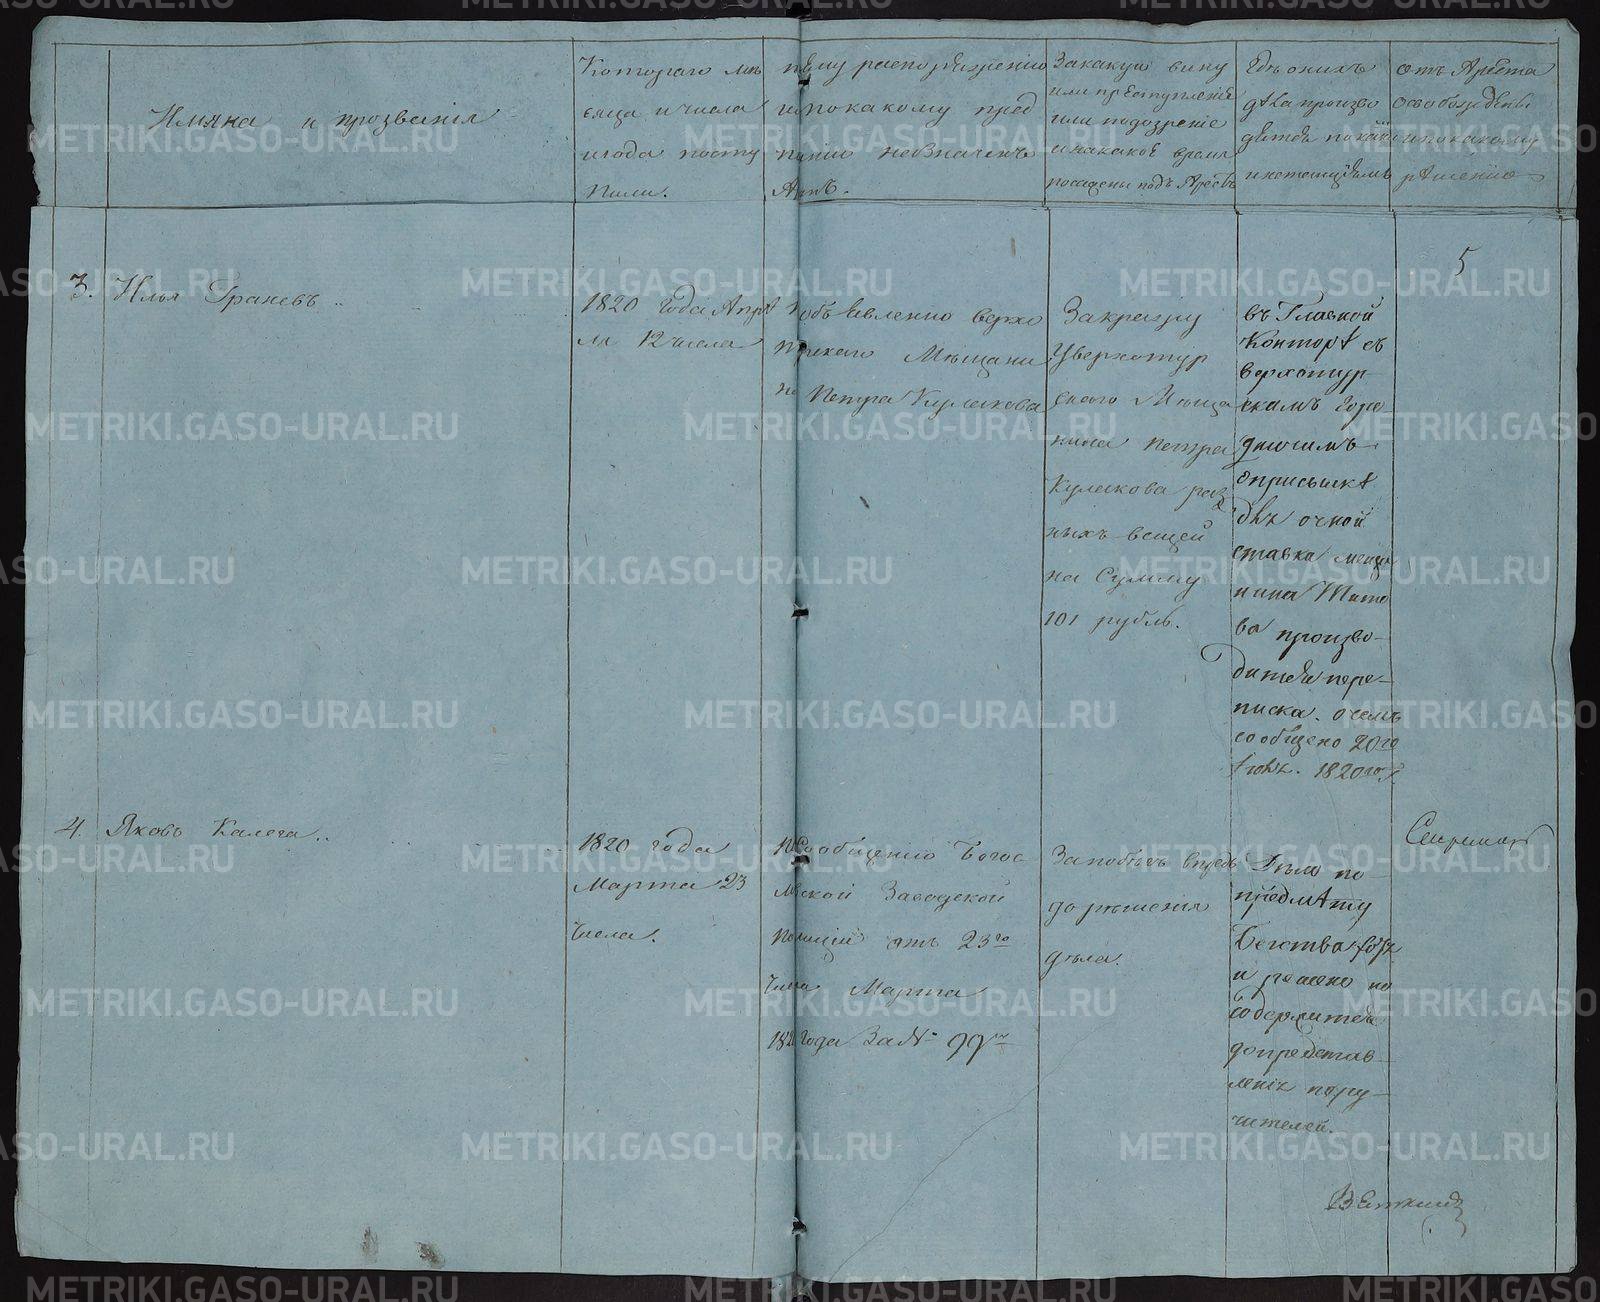 Имяна и прозвания
Котораго мѣ
сяца и числа
и года посту
пили.
чьему распоряжению
и по какому пред
писанию
За какую вину
или преступление
или подозрение
и на какое время
посажены подъ Арестъ
Где о нихъ
дѣла произво
дятся
отъ Ареста
освобождены
и по какому
рѣшению
5
3. Илья
1820 года Апрѣ
ля 12 числа
По объявлению Верхо
турскаго Мѣщани
на Петра Кулескова
За кражу
у Верхотур
скаго Мѣща
нина Петра
Кулескова раз
ныхъ вещей
на Сумму
101 рубль.
въ Главной
Конторѣ съ
верхотур
скимъ горо
дничимъ
о присылкѣ
для очной
ставки меща
нина Тито
ва произво-
дится пере-
писка. о чемъ
сообщено 20го
1820го
4. Яковъ Калега..
1820 года
Марта 23
числа.
По сообщению Богос
ловской Заводской
полиции отъ 23го
числа Марта
1820 года За № 99м
За побегъ впредь
до решения
дѣла.
Дѣло по
предмѣту
Бегства
и решено но
содержится
до представ-
ления пору-
чителей.
METRIKI.GASO-URAL.RU